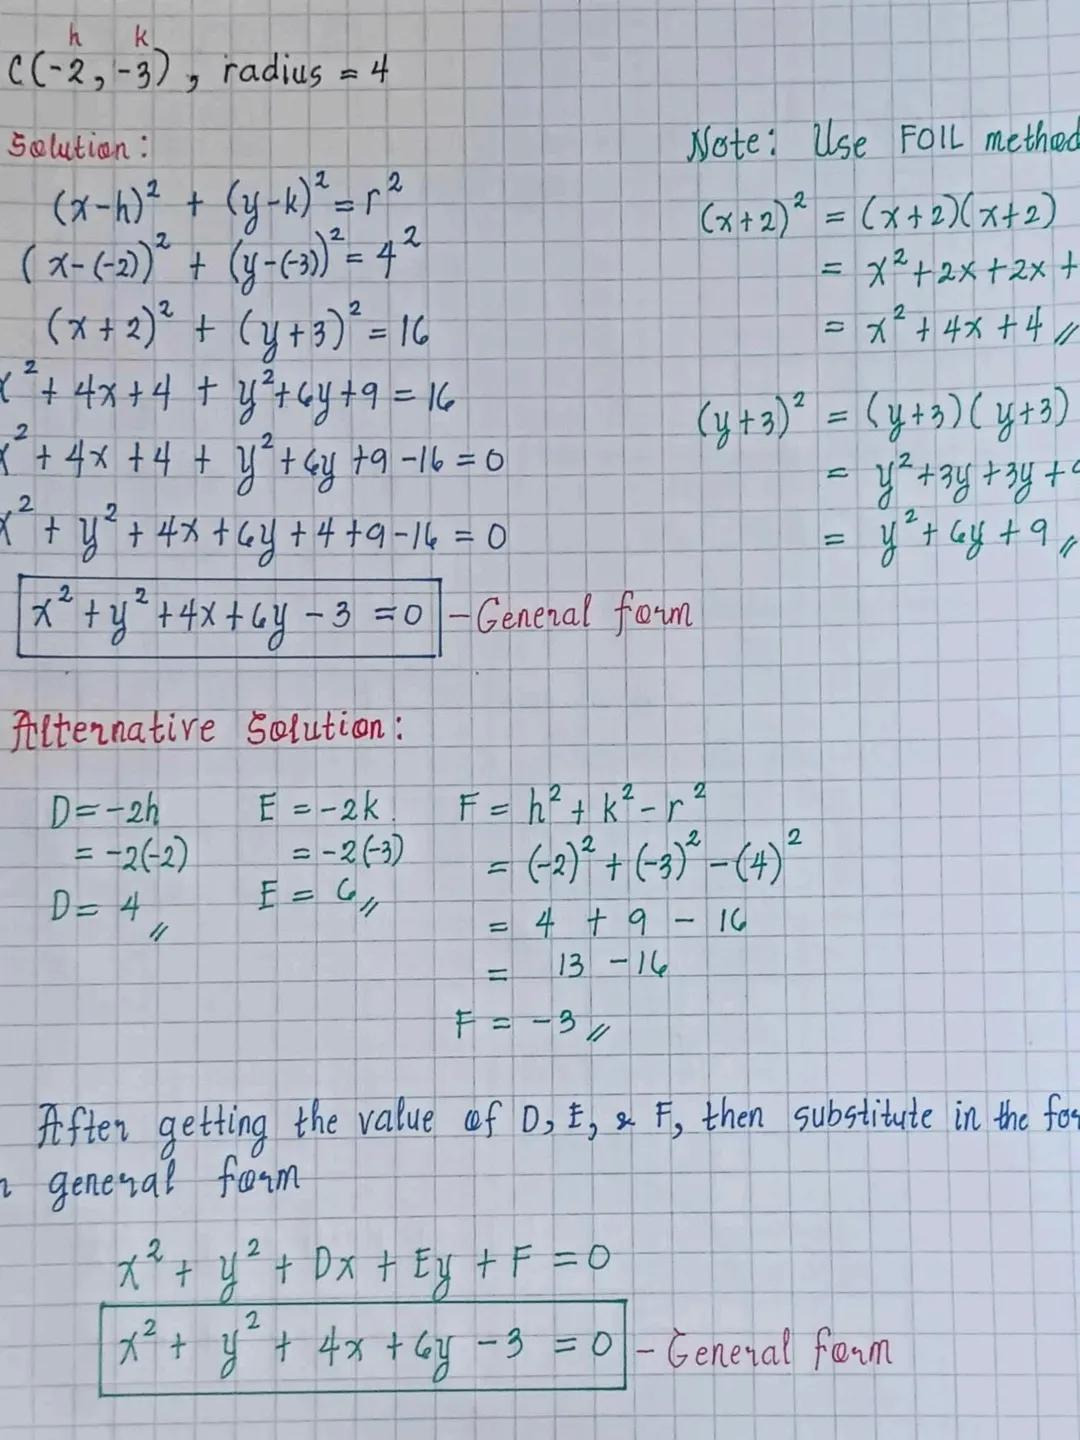 h k
C(-2, -3), radius = 4
Solution:
(x-h)² + (y-k)² = r²
(x-(-2))² + (y-(-3))² = 4²
(x+2)² + (y+3)² = 16
x² + 4x+4 + y²+6y+9 = 16
x² + 4x+4 + y²+6y+9-16 = 0
x² + y² + 4x+6y+4+9-16 = 0
x² + y² + 4x+6y-3 = 0 - General form
Note: Use FOIL method
(x+2)² = (x+2)(x+2)
= x²+2x+2x+
= x²+4x+4 //
(y+3)² = (y+3)(y+3)
= y²+3y+3y+
= y²+6y+9 //
Alternative Solution:
D=-2h
= -2(-2)
D= 4 //
E = -2k
= -2(-3)
E = 6 //
F = h² + k² - r²
= (-2)² + (-3)² - (4)²
= 4 + 9 - 16
= 13 - 16
F = -3 //
After getting the value of D, E, & F, then substitute in the
general form
x² + y² + Dx + Ey + F = 0
x² + y² + 4x + 6y - 3 = 0 - General form